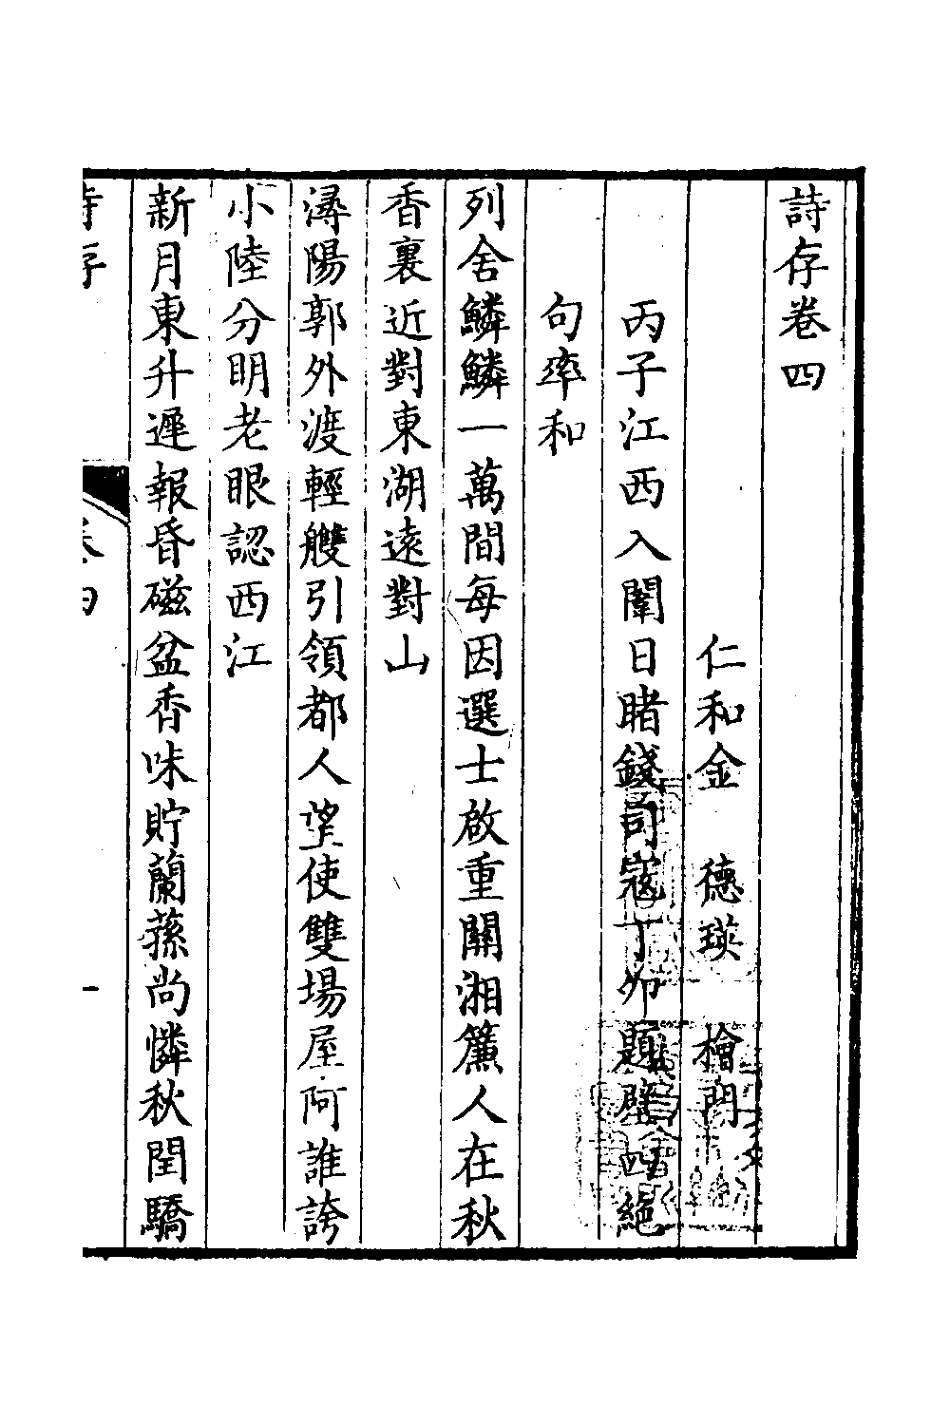 詩存卷四
仁和金 德瑛 檜門
丙子江西入闈日睹錢司寇丁卯題壁四絕
句率和
列舍鱗鱗一萬間每因選士啟重關湘簾人在秋
香裏近對東湖遠對山
潯陽郭外渡輕艭引領都人望使雙場屋阿誰誇
小陸分明老眼認西江
新月東升遲報昏磁盆香味貯蘭蓀尚憐秋閏驕
詩存
卷四
一